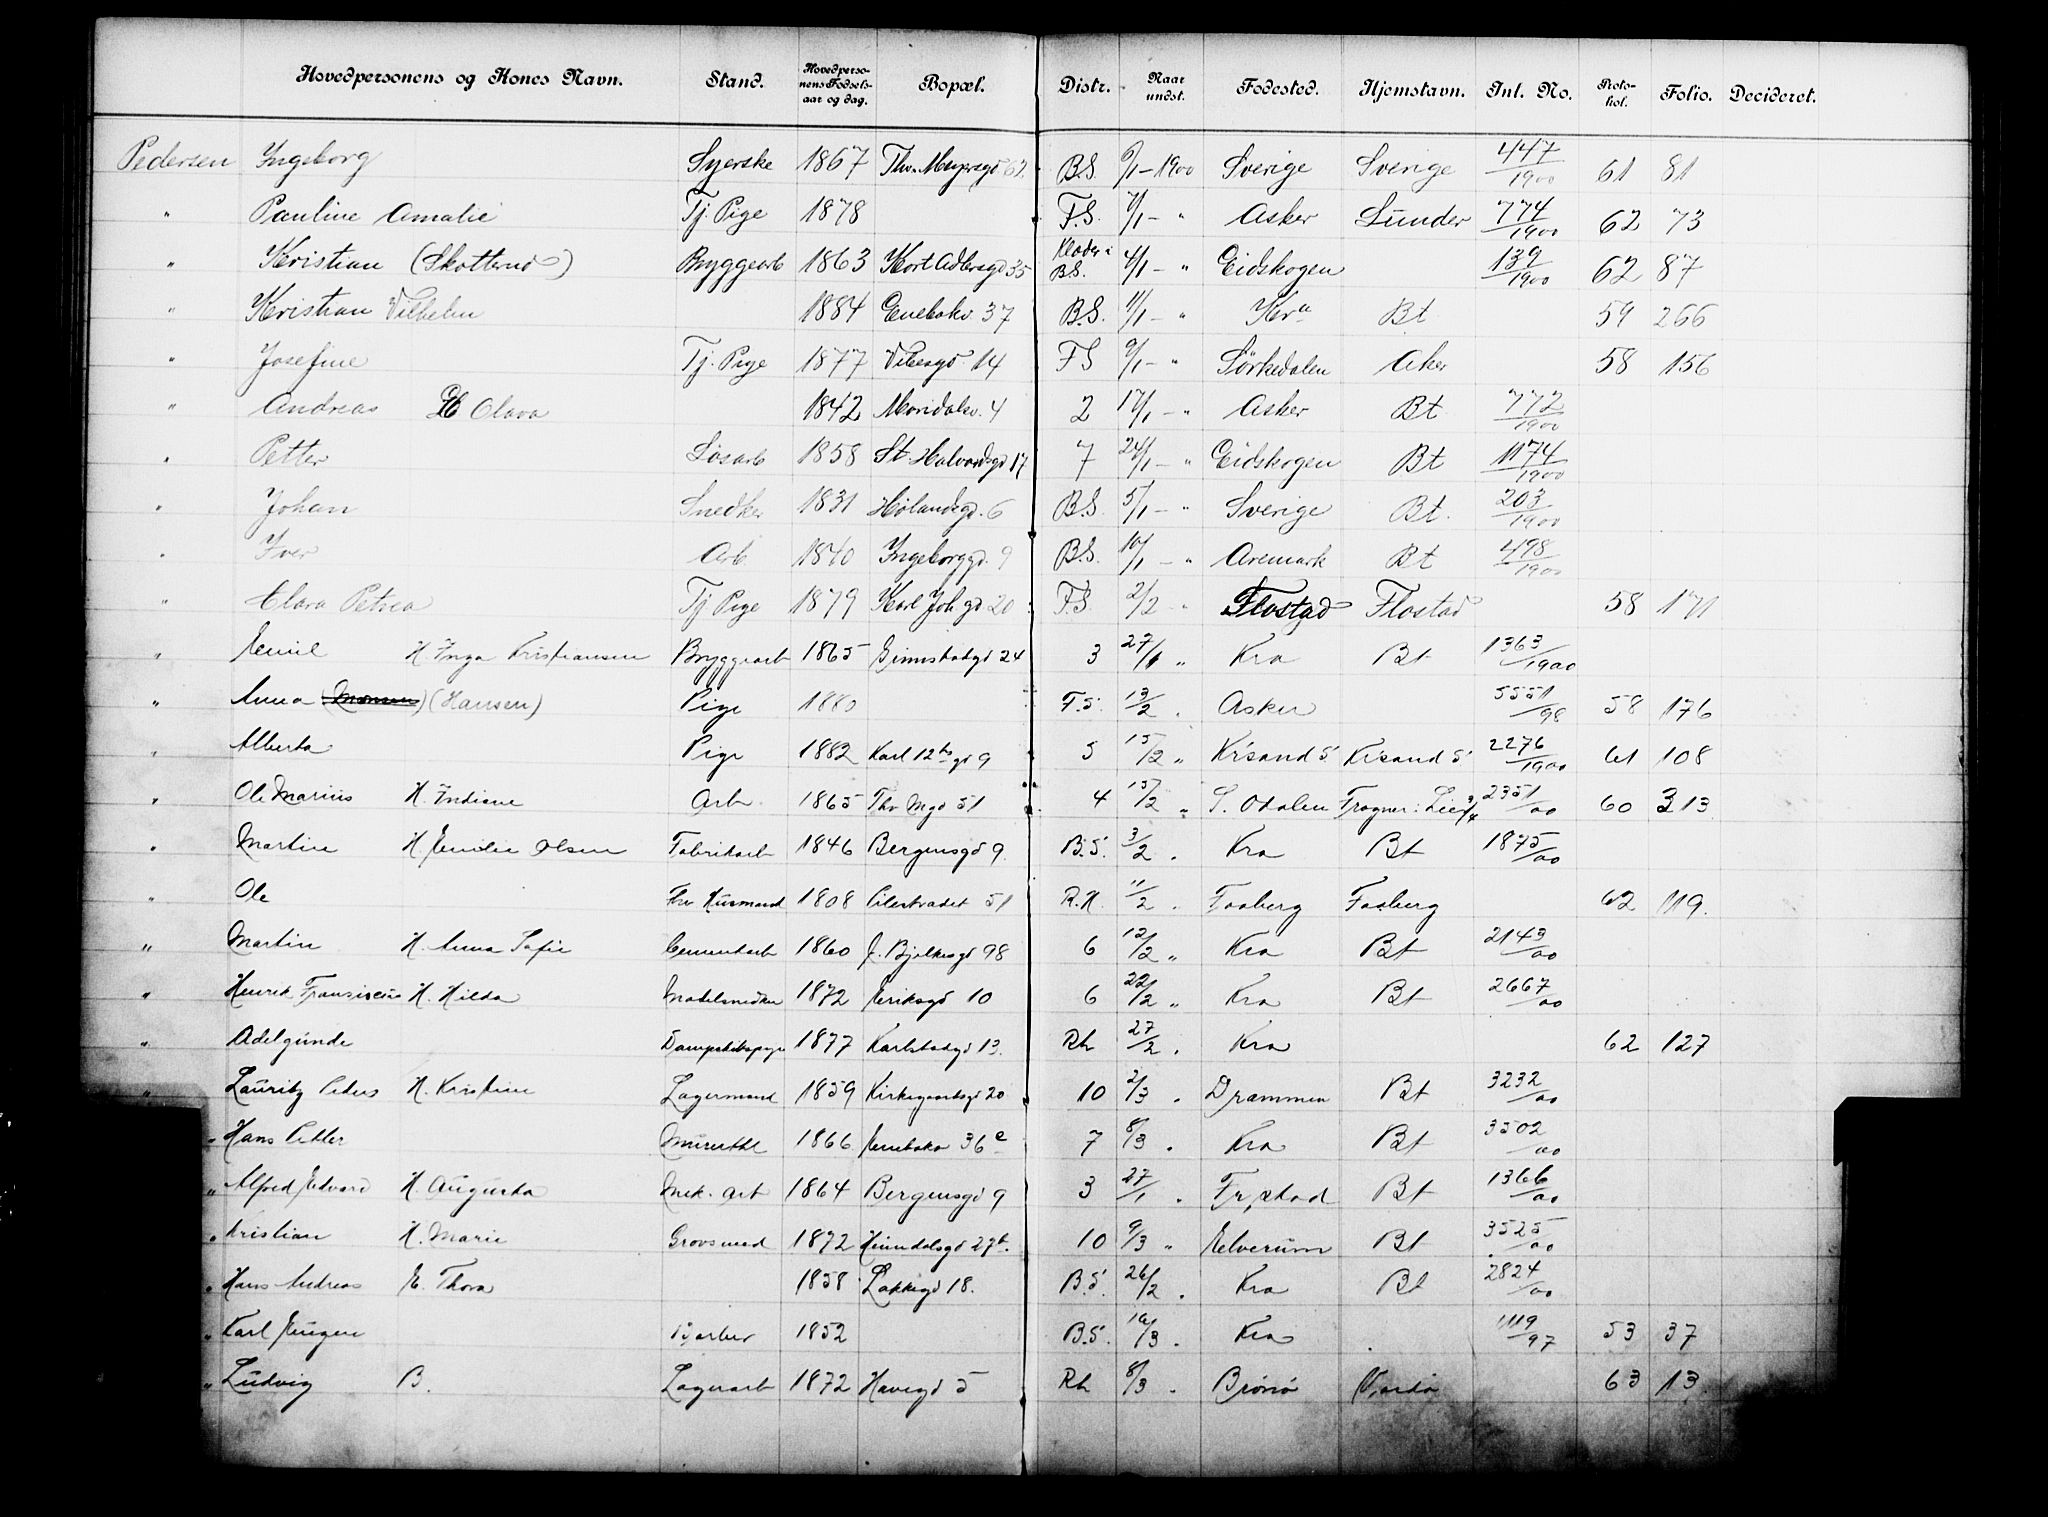 Hovedpersonens og Kones Navn. Stand. Hovedpersonens Fødselsaar og dag. Bopæl. Distr. Naar undst. Fødested. Hjemstavn. Inl. No. Protokol. Folio. Decideret.
Pedersen Ingeborg Syerske 1867 Thv. Meyersgd 62. B.S. 6/1 - 1900 Sverige Sverige 447/1900 61 81
" Pauline Amalie Tj. Pige 1878 F.S. 7/1 - " Asker Lunder 774/1900 62 73
" Kristian (Skotterud) Bryggearb 1863 Kort Adlersgd 35 Klader i B.S. 4/1 - " Eidskogen 139/1900 62 87
" Kristian Vilhelm 1884 Enebakv 37 B.S. 11/1 - " Kra Bt 59 266
" Josefine Tj. Pige 1877 Vibesgd 14 F.S 9/1 - " Sørkedalen Aker 58 156
" Andreas H Olava 1842 Maridalsv. 4 2 17/1 - " Asker Bt 772/1900
" Petter Løsarb 1858 St. Halvardsgd 17 7 24/1 - " Eidskogen Bt 1174/1900
" Johan Snedker 1831 Hølandsgd. 6 B.S. 5/1 - " Sverige Bt. 203/1900
" Iver Arb. 1840 Ingeborggd. 9 B.S. 10/1 - " Aremark Bt 498/1900
" Clara Petrea Tj Pige 1879 Karl Joh. gd 20 F.S 2/2 - " Flostad Flostad 58 171
" Emil H. Inga Kristiansen Bryggearb 1865 Grimstadgd 24 3 27/1 " Kra Bt 1363/1900
" Anna (Hansen) Pige 1880 F.S. 13/2 " Asker 5551/98 58 176
" Alberta Pige 1882 Karl 12ts gd 9 5 15/2 " Krsand S. Krsand S. 2276/1900 61 108
" Ole Marius H. Indiane Arb. 1865 Thv Mgd 51 4 15/2 " S. Odalen Frogner i Lier 2351/00 60 313
" Martin H. Emilie Olsen Fabrikarb 1846 Bergensgd 9. B.S. 3/2 " Kra Bt 1875/00
" Ole Fhv Husmand 1808 Pilestrædet 51 R.H. 11/2 " Faaberg Faaberg 62 119.
" Martin H. Anna Sofie Cementarb 1860 J. Bjelkesgd 98 6 12/2 " Kra Bt 2143/00
" Henrik Fransiscus H. Hilda Modelsnedker 1872 Eriksgd 10 6 22/2 " Kra Bt 2667/00
" Adelgunde Dampskibspige 1877 Karlstadgd 13. Rh 27/2 " Kra 62 127
" Lauritz Peder H. Kristine Lagermand 1859 Kirkegaardsgd 20 10 2/3 " Drammen Bt 3232/00
" Hans Petter Murerthl 1866 Enebakv 36 e 7 8/3 " Kra Bt 3502/00
" Alfred Edvard H. Augusta Mek. arb 1864 Bergensgd 9 3 27/1 " Fr,stad Bt 1366/00
" Kristian H. Marie Grovsmed 1872 Heimdalsgd 27 b. 10 9/3 " Elverum Bt 3525/00
" Hans Andreas E. Thora 1858 Lakkegd 18. B.S. 26/2 " Kra Bt 2824/00
" Karl Jørgen Barber 1852 B.S. 16/3 " Kra 1119/97 53 37
" Ludvig B. Lagerarb 1872 Havegd 5 Rh 8/3 " Brønø Vardø 63 13.